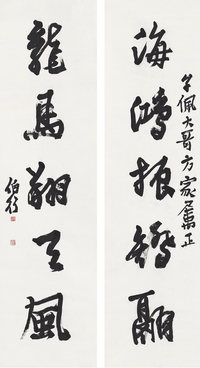 子佩大哥方家屬正
海鴻振翮
龍馬翔天風
伯